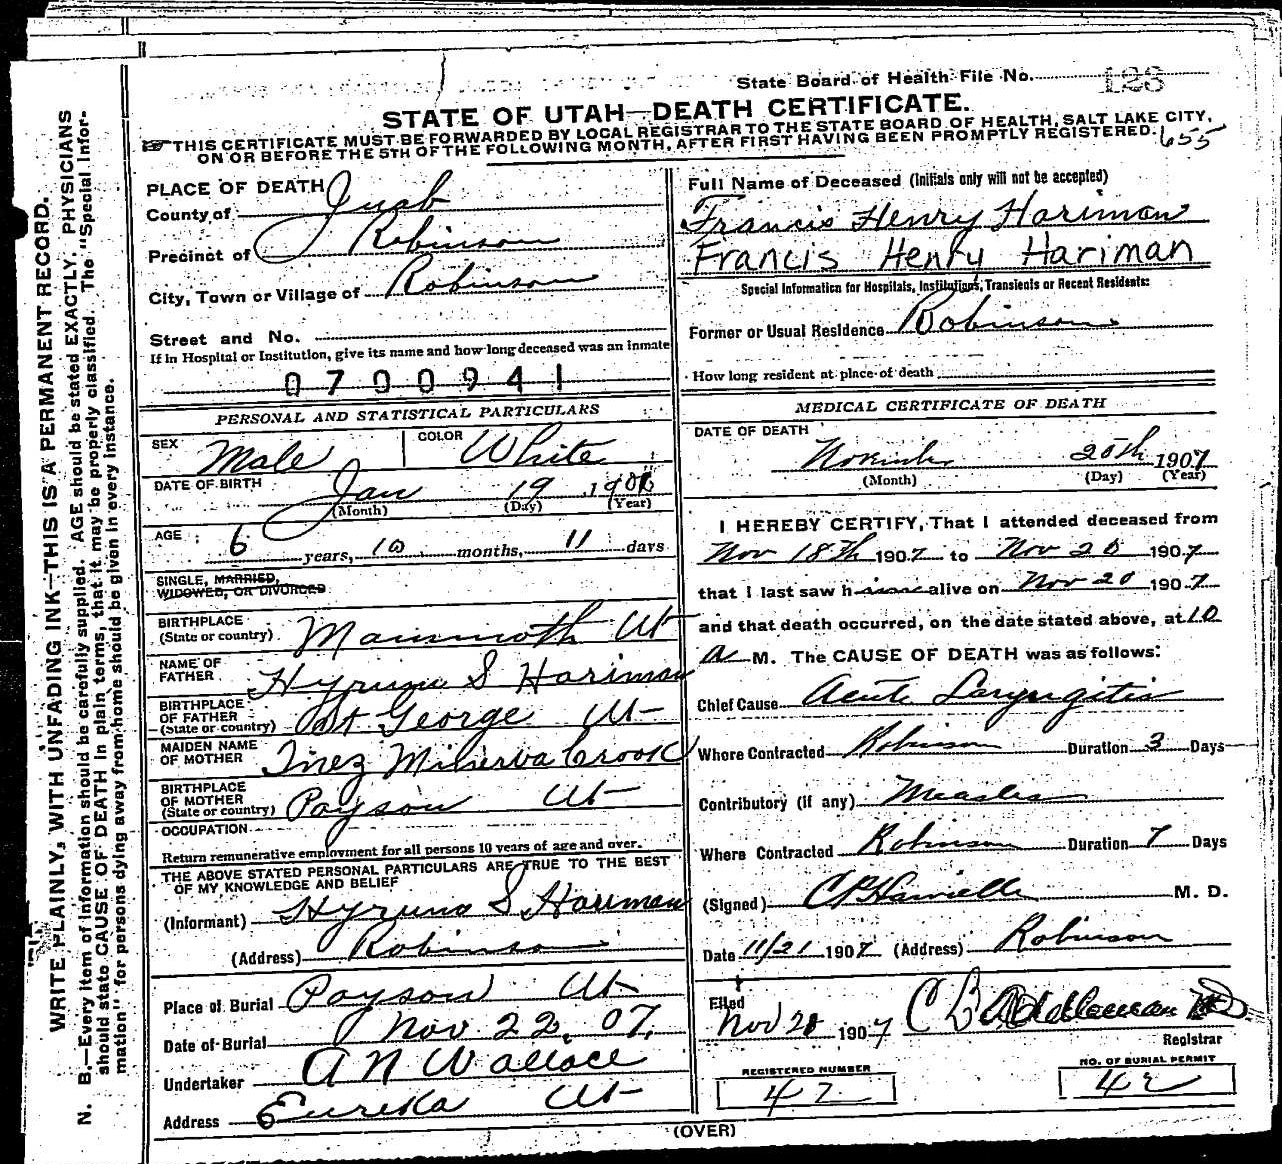 State Board of Health File No. 123
STATE OF UTAH—DEATH CERTIFICATE.
THIS CERTIFICATE MUST BE FORWARDED BY LOCAL REGISTRAR TO THE STATE BOARD OF HEALTH, SALT LAKE CITY,
ON OR BEFORE THE 5TH OF THE FOLLOWING MONTH, AFTER FIRST HAVING BEEN PROMPTLY REGISTERED. 655
WRITE PLAINLY, WITH UNFADING INK—THIS IS A PERMANENT RECORD.
N. B.—Every item of information should be carefully supplied. AGE should be stated EXACTLY. PHYSICIANS
should state CAUSE OF DEATH in plain terms, that it may be properly classified. The "Special Infor-
mation" for persons dying away from home should be given in every instance.
PLACE OF DEATH
County of Juab
Precinct of Robinson
City, Town or Village of Robinson
Street and No.
If in Hospital or Institution, give its name and how long deceased was an inmate
0700941
PERSONAL AND STATISTICAL PARTICULARS
SEX Male COLOR White
DATE OF BIRTH Jan 19 190
(Month) (Day) (Year)
AGE 6 years, 10 months, 11 days
SINGLE, MARRIED,
WIDOWED, OR DIVORCED
BIRTHPLACE
(State or country) Mammoth Ut
NAME OF
FATHER Hyrum S Hariman
BIRTHPLACE
OF FATHER
(State or country) St George Ut
MAIDEN NAME
OF MOTHER Inez Minerva Crook
BIRTHPLACE
OF MOTHER
(State or country) Payson Ut
OCCUPATION
Return remunerative employment for all persons 10 years of age and over.
THE ABOVE STATED PERSONAL PARTICULARS ARE TRUE TO THE BEST
OF MY KNOWLEDGE AND BELIEF
(Informant) Hyrum S Hariman
(Address) Robinson
Place of Burial Payson Ut
Date of Burial Nov 22, 07.
Undertaker A N Wallace
Address Eureka Ut
Full Name of Deceased (Initials only will not be accepted)
Francis Henry Hariman
Francis Henry Hariman
Special Information for Hospitals, Institutions, Transients or Recent Residents:
Former or Usual Residence Robinson
How long resident at place of death
MEDICAL CERTIFICATE OF DEATH
DATE OF DEATH
November 20th 1907
(Month) (Day) (Year)
I HEREBY CERTIFY, That I attended deceased from
Nov 18th 1907 to Nov 20 1907
that I last saw him alive on Nov 20 1907
and that death occurred, on the date stated above, at 10
A M. The CAUSE OF DEATH was as follows:
Chief Cause Acute Laryngitis
Where Contracted Robinson Duration 3 Days
Contributory (if any) Measles
Where Contracted Robinson Duration 7 Days
(Signed) M. D.
Date 11/21 1907 (Address) Robinson
Filed
Nov 21 1907
Registrar
REGISTERED NUMBER
42
NO. OF BURIAL PERMIT
42
(OVER)